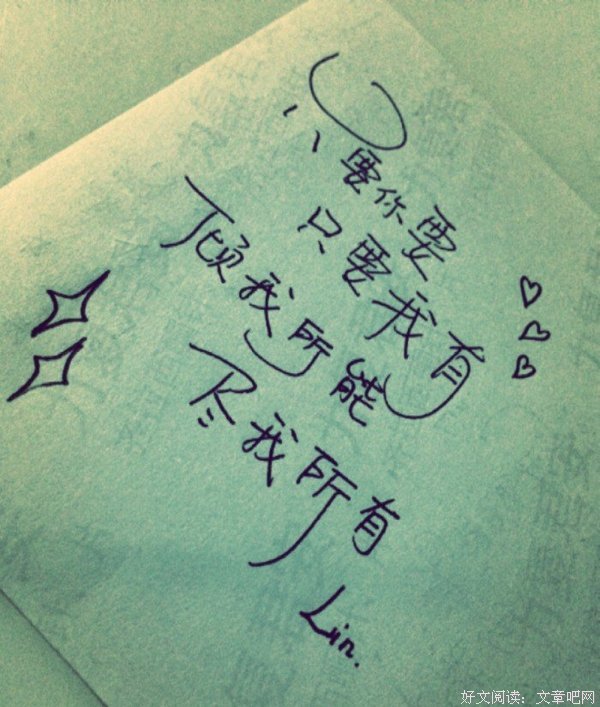 只要你要
只要我有
倾我所能
尽我所有
Lin.
好文阅读：文章吧网